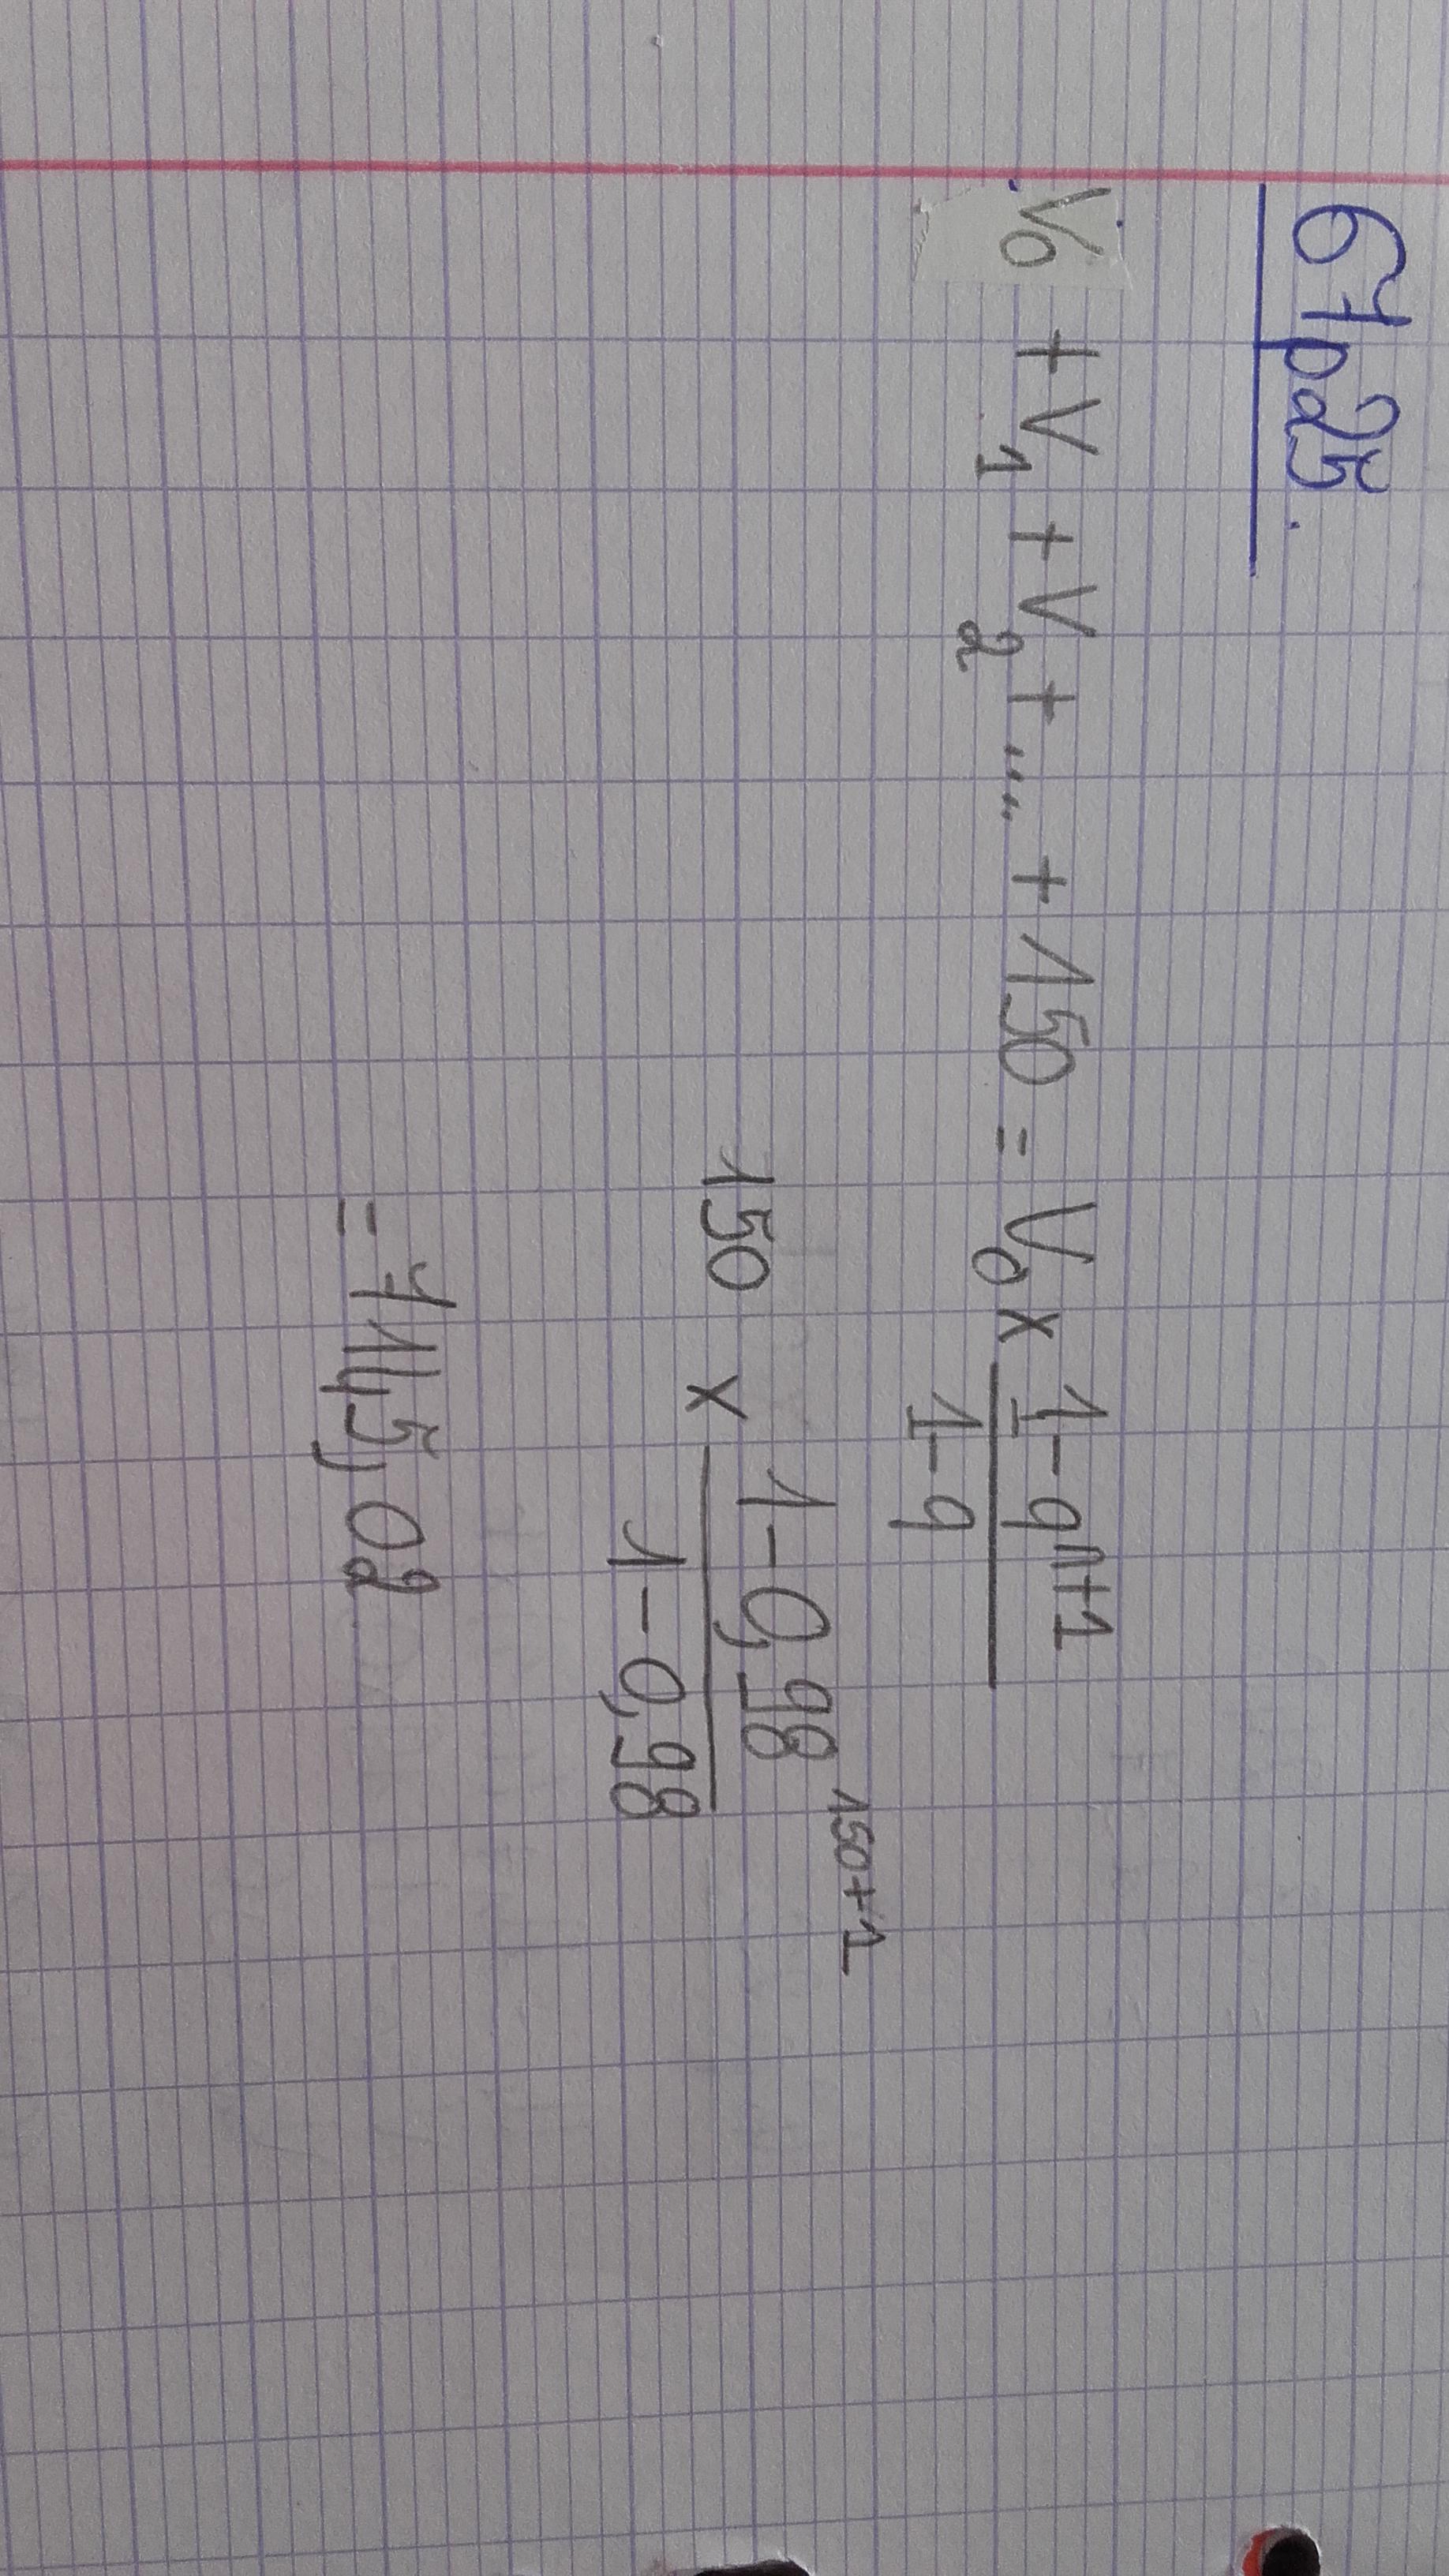 61p25.
V0 + V1 + V2 + ... + 150 = V0 x (1 - q^(n+1)) / (1 - q)
150 x (1 - 0,98^(150+1)) / (1 - 0,98)
= 7145,02